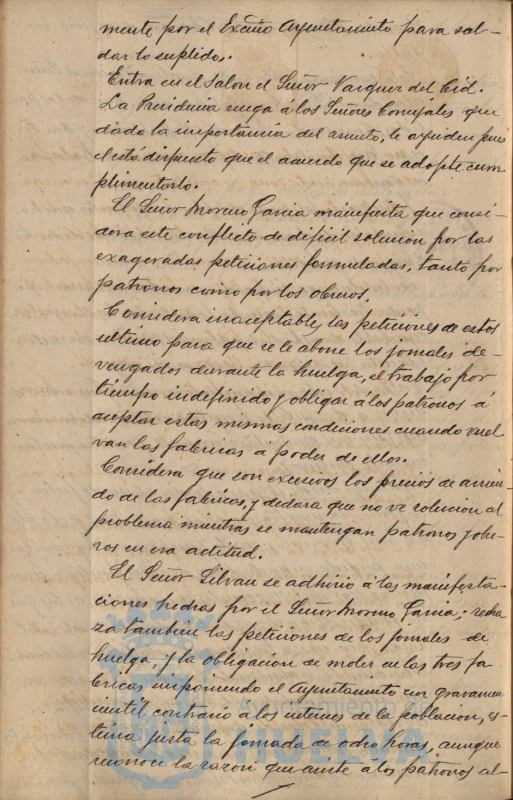 mente por el Excmo Ayuntamiento para sal-
dar lo suplido.
Entra en el salon el Señor Vazquez del Cid.
La Presidencia ruega á los Señores Concejales que
dado la importancia del asunto, le ayuden pues
el está dispuesto que el acuerdo que se adopte cum
plimentarlo.
El Señor Moreno Garcia manifiesta que consi-
dera este conflicto de dificil solucion por las
exageradas peticiones formuladas, tanto por
patronos como por los obreros.
Considera inaceptable, las peticiones de estos
ultimo para que se le abone los jornales de-
vengados durante la huelga, el trabajo por
tiempo indefinido y obligar á los patronos á
aceptar estas mismas condiciones cuando vuel
van las fabricas á poder de ellos.
Considera que son excesivos los precios de arrien-
do de las fabricas, y declara que no ve solucion al
problema mientras se mantengan patronos y obre-
ros en esa actitud.
El Señor Silvan se adhirió á las manifesta-
ciones hechas por el Señor Moreno Garcia; recha
za tambien las peticiones de los jornales de
huelga, y la obligacion de moler en las tres fa
bricas imponiendo el Ayuntamiento un gravamen
inutil contrario á los intereses de la poblacion, es-
tima justa la jornada de ocho horas, aunque
reconoce la razon que asiste á los patronos al-
Ayuntamiento de
HUELVA